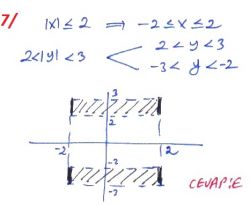 7/ |x| ≤ 2 ⟹ -2 ≤ x ≤ 2
2 < y < 3
2<|y| < 3
-3 < y < -2
3
2
-2 2
-2
-3
CEVAP:E